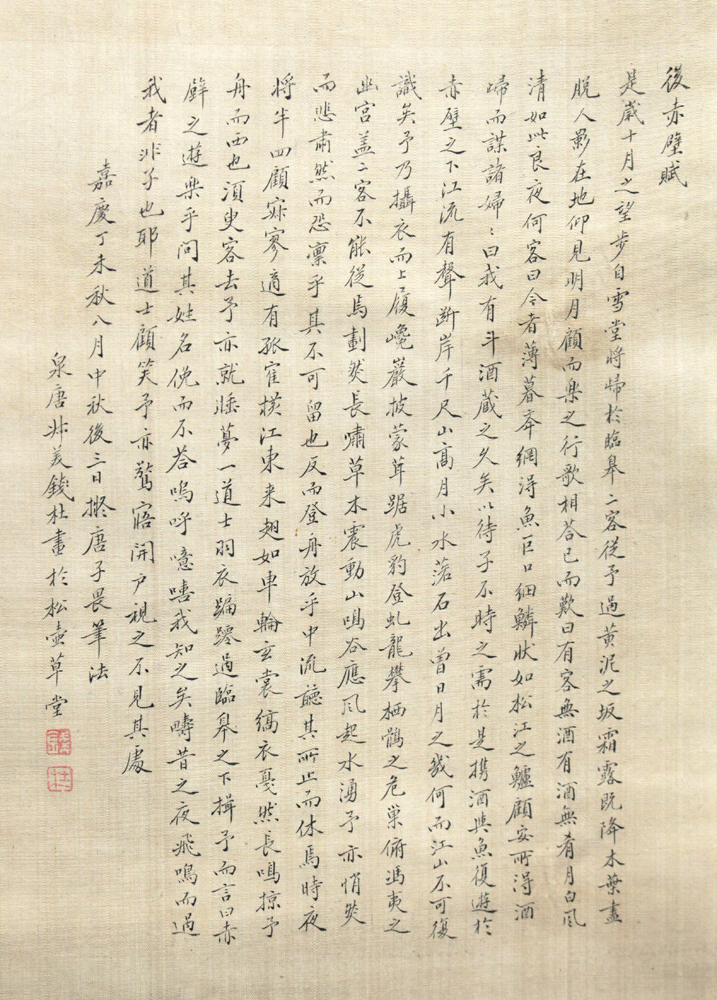 後赤壁賦
是歲十月之望步自雪堂將歸於臨皋二客從予過黃泥之坂霜露既降木葉盡
脫人影在地仰見明月顧而樂之行歌相荅已而歎曰有客無酒有酒無肴月白風
清如此良夜何客曰今者薄暮舉網得魚巨口細鱗狀如松江之鱸顧安所得酒
歸而謀諸婦〻曰我有斗酒藏之久矣以待子不時之需於是攜酒與魚復遊於
赤壁之下江流有聲斷岸千尺山高月小水落石出曾日月之幾何而江山不可復
識矣予乃攝衣而上履巉巖披蒙茸踞虎豹登虬龍攀栖鶻之危巢俯馮夷之
幽宮盖二客不能從焉劃然長嘯草木震動山鳴谷應風起水湧予亦悄然
而悲肅然而恐凜乎其不可留也反而登舟放乎中流聽其所止而休焉時夜
將半四顧寂寥適有孤隺橫江東來翅如車輪玄裳縞衣戞然長鳴掠予
舟而西也須臾客去予亦就睡夢一道士羽衣蹁躚過臨皋之下揖予而言曰赤
壁之遊樂乎問其姓名俛而不荅嗚呼噫嘻我知之矣疇昔之夜飛鳴而過
我者非子也耶道士顧笑予亦驚寤開戶視之不見其處
嘉慶丁未秋八月中秋後三日擬唐子畏筆法
泉唐叔美錢杜畫於松壺草堂
錢
杜